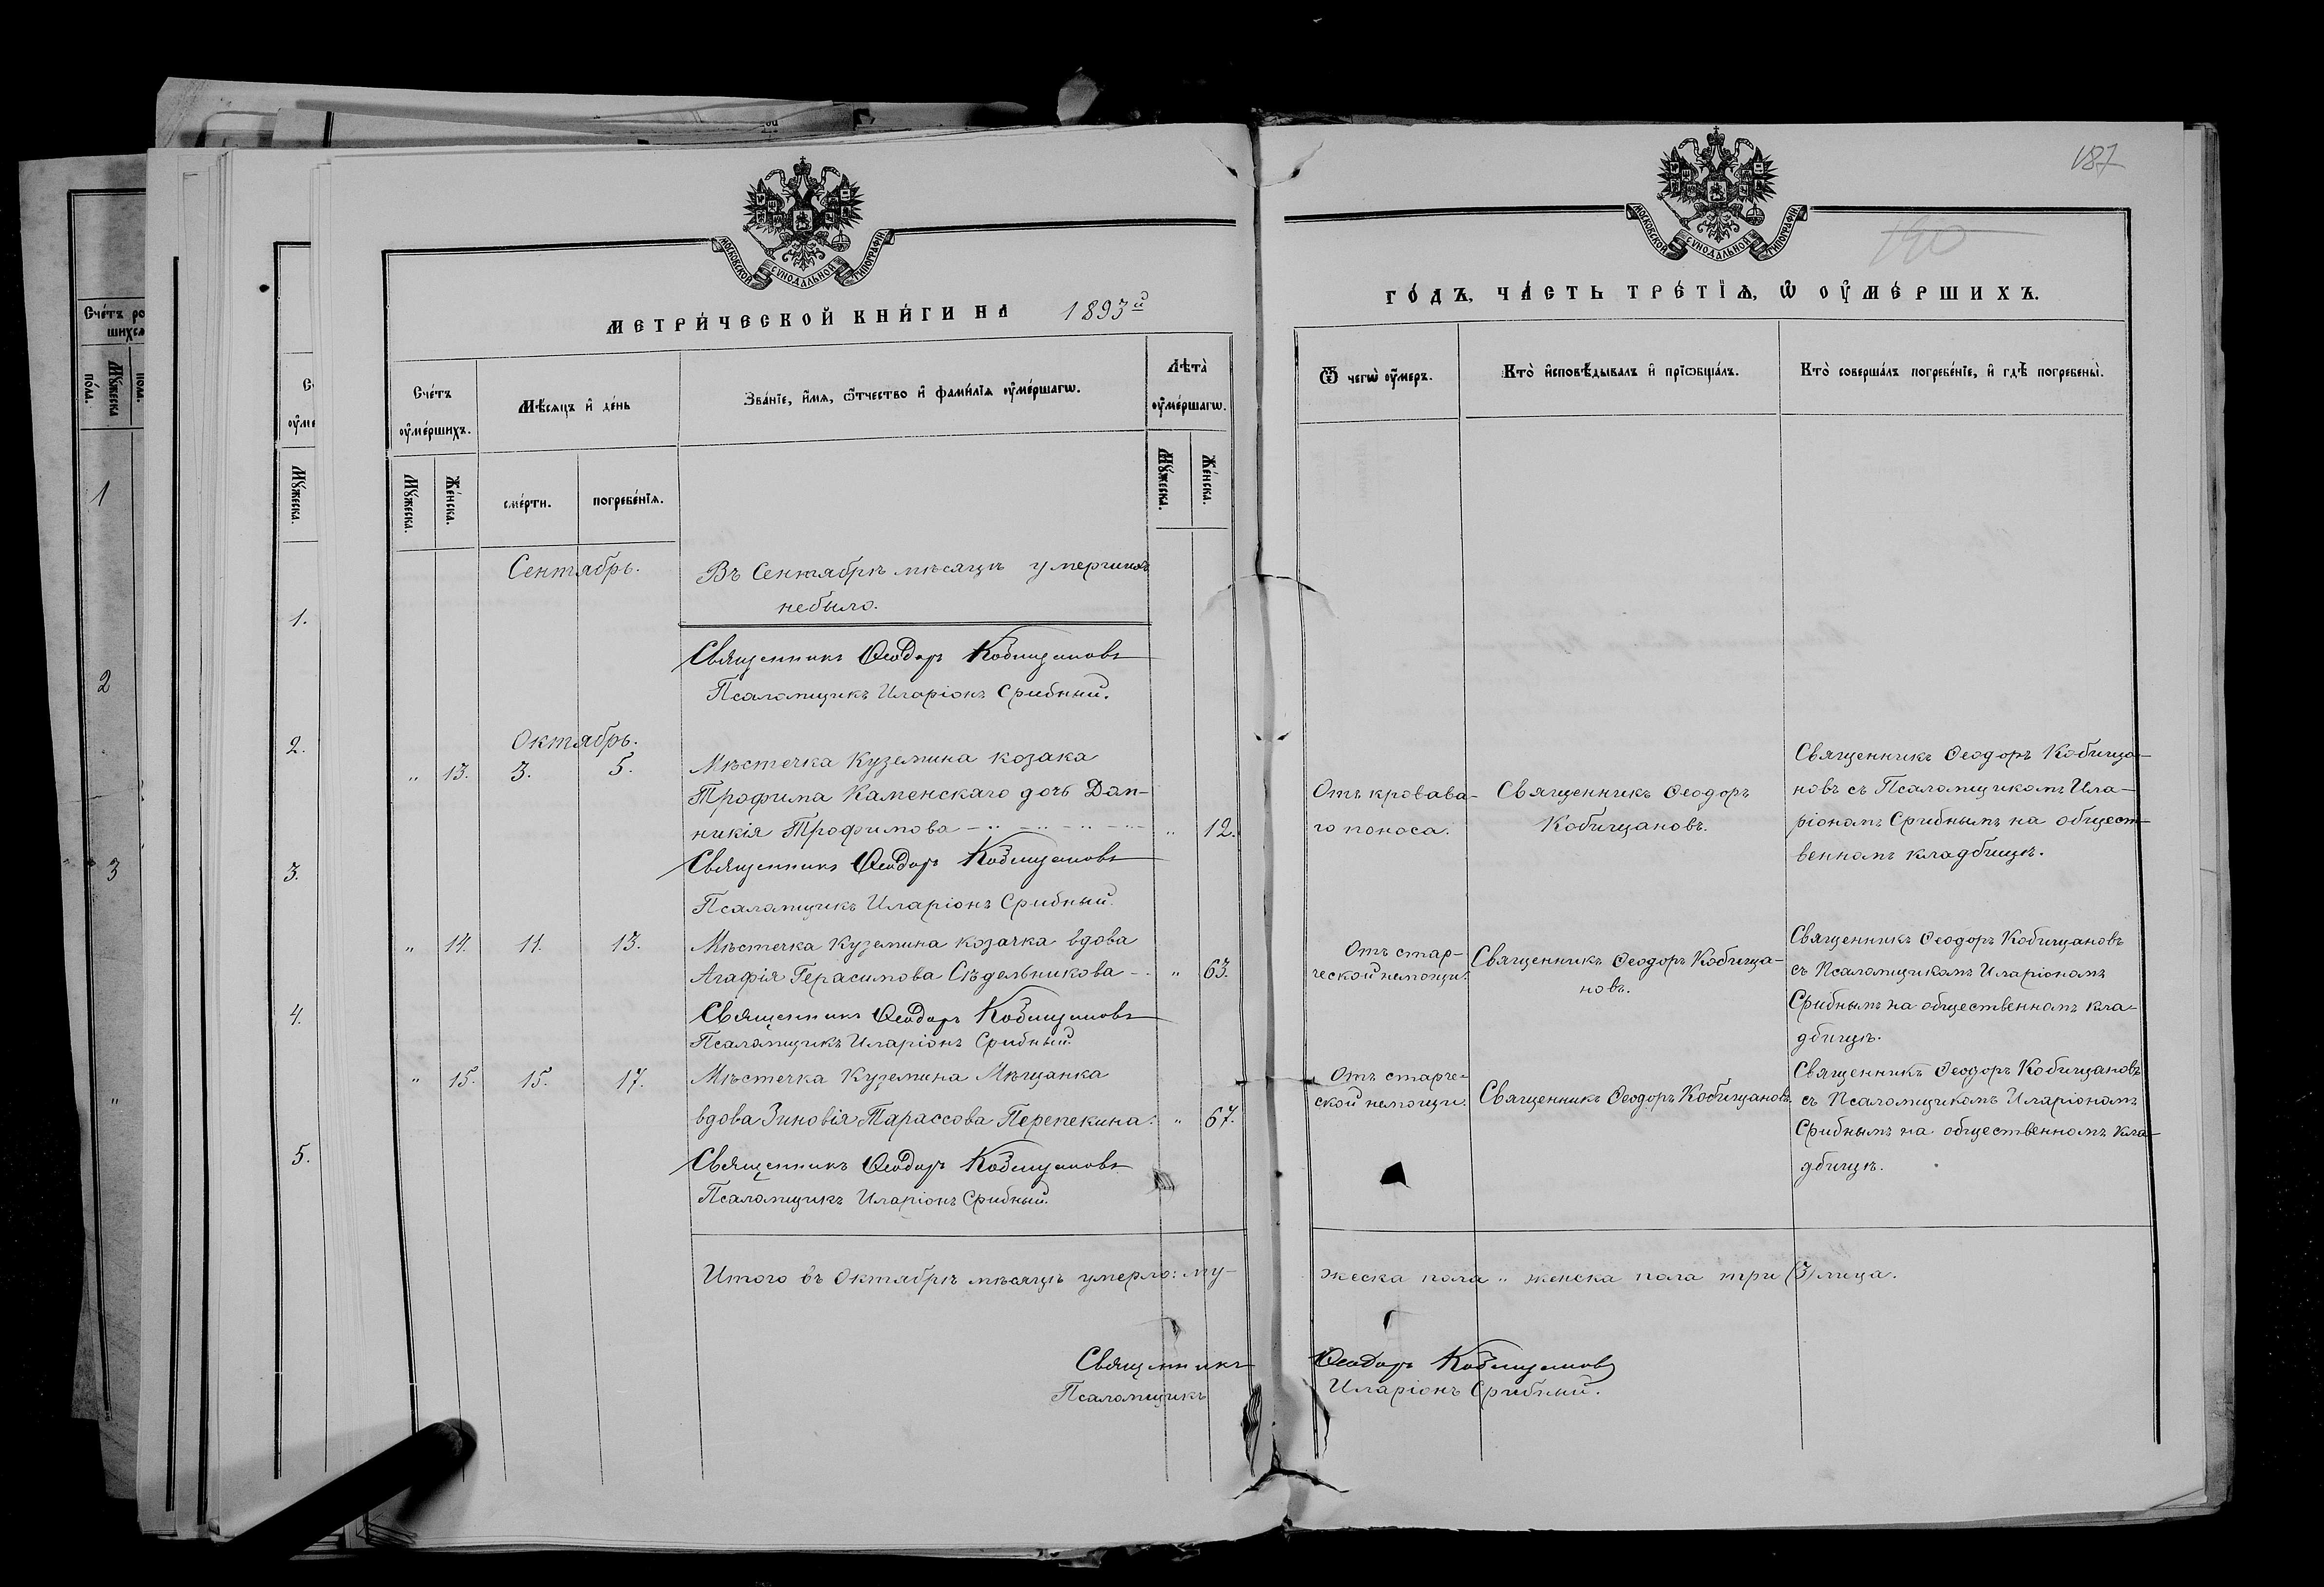 187
190
МОСКОВСКОЙ СѴНОДАЛЬНОЙ ТИПОГРАФІИ.
МОСКОВСКОЙ СѴНОДАЛЬНОЙ ТИПОГРАФІИ.
МЕТРИ́ЧЕСКОЙ КНИ́ГИ НА 1893й
ГО́ДЪ, ЧА́СТЬ ТРЕ́ТІѦ, Ѽ ОУ҆МЕ́РШИХЪ.
Сче́тъ оу҆ме́ршихъ.
Мѣ́сяцъ и҆ де́нь
Зва́нїе, и҆́мѧ, ѻ҆́тчество и҆ фами́лїѧ оу҆ме́ршагѡ.
Лѣта̀ оу҆ме́ршагѡ.
Ѿ чегѡ̀ оу҆́меръ.
Кто̀ и҆сповѣ́дывалъ и҆ прїѡбща́лъ.
Кто̀ соверша́лъ погребе́нїе, и҆ гдѣ̀ погребены̀.
Мꙋ́жеска.
Же́нска.
сме́рти.
погребе́нїѧ.
Мꙋ́жеска.
Же́нска.
Сентябрь.
Въ Сентябрѣ мѣсяцѣ умершихъ
небыло.
Священникъ Ѳеодоръ Кобищановъ
Псаломщикъ Иларіонъ Срибный.
Октябрь.
„ 13. 3. 5.
Мѣстечка Куземина козака
Трофима Каменскаго дочь Дом-
никія Трофимова „ 12.
Отъ кровава-
го поноса.
Священникъ Ѳеодоръ
Кобищановъ.
Священникъ Ѳеодоръ Кобища-
новъ съ Псаломщикомъ Ила-
ріономъ Срибнымъ на общест-
венномъ кладбищѣ.
Священникъ Ѳеодоръ Кобищановъ
Псаломщикъ Иларіонъ Срибный.
„ 14. 11. 13.
Мѣстечка Куземина козачка вдова
Агафія Герасимова Сѣдельникова - „ 63.
Отъ стар-
ческой немощи.
Священникъ Ѳеодоръ Кобища-
новъ.
Священникъ Ѳеодоръ Кобищановъ
съ Псаломщикомъ Иларіономъ
Срибнымъ на общественномъ кла-
дбищѣ.
Священникъ Ѳеодоръ Кобищановъ
Псаломщикъ Иларіонъ Срибный.
„ 15. 15. 17.
Мѣстечка Куземина Мѣщанка
вдова Зиновія Тарассова Перепекина. „ 67.
Отъ старче-
ской немощи.
Священникъ Ѳеодоръ Кобищановъ.
Священникъ Ѳеодоръ Кобищановъ
съ Псаломщикомъ Иларіономъ
Срибнымъ на общественномъ кла-
дбищѣ.
Священникъ Ѳеодоръ Кобищановъ
Псаломщикъ Иларіонъ Срибный.
Итого въ Октябрѣ мѣсяцѣ умерло: му-
жеска пола „ женска пола три (3) лица.
Священникъ Ѳеодоръ Кобищановъ
Псаломщикъ Иларіонъ Срибный.
Сче́тъ ро
шихсѧ
Мꙋ́жеска
по́ла.
по́ла.
1
2
3
„
Мꙋ́жеска.
1.
2.
3.
4.
5.